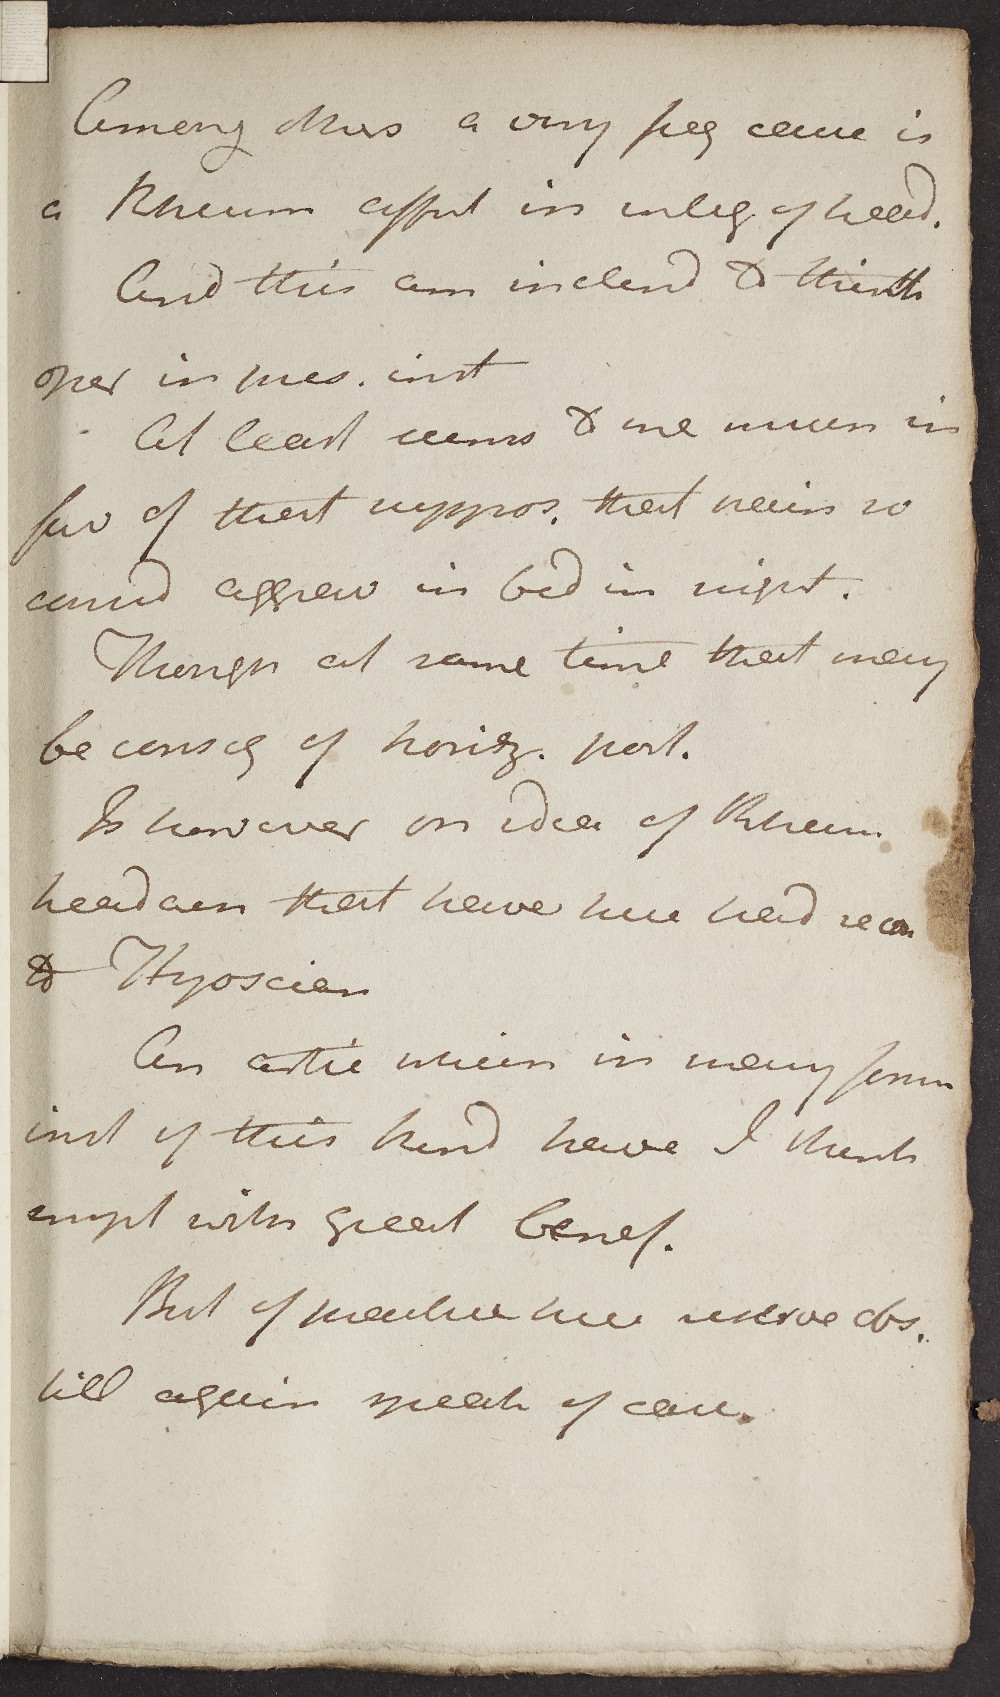 Among others a very freq cause is
a Rheum affect in integ of head.
And this am inclind to think
oper in pres. inst
At least seems to me much in
fav of that suppos. that pain so
consid aggrav in bed in night.
Though at same time that may
be conseq of horitz. post.
Is however on idea of Rheum.
headach that have here had recou
to Hyosciam
An artic which in many form
inst of this kind have I think
empl with great benef.
But of practice here reserve obs.
till again speak of case.